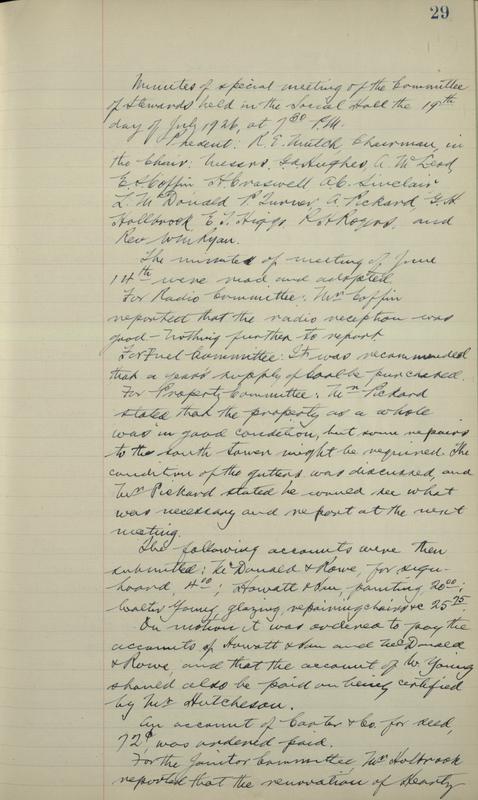 29
Minutes of special meeting of the Committee
of Stewards held in the Social Hall the 19th
day of July 1926, at 7 30 P.M.
Present: R. E. Mutch, Chairman, in
the Chair; Messrs. Hughes, A. McLeod,
E. S. Coffin, H. Craswell A. C. Sinclair
L. McDonald P. Turner, A. Pickard, G. H.
Hollbrook, E. T. Higgs, R. H. Rogers, and
Rev. Wm Ryan.
The minutes of meeting of June
14th were read and adopted.
For Radio Committee: Mr Coffin
reported that the radio reception was
good - nothing further to report
For Fuel Committee: It was recommended
that a year's supply of coal be purchased.
For Property Committee: Mr Pickard
stated that the property as a whole
was in good condition, but some repairs
to the south tower might be required. The
condition of the gutters was discussed, and
Mr Pickard stated he would see what
was necessary and report at the next
meeting.
The following accounts were then
submitted: McDonald & Rowe, for sign-
board, 4 00; Howatt & Son, painting, 20 00;
Walter Young, glazing, repairing chairs &c 25 75.
On motion it was ordered to pay the
accounts of Howatt & Son and McDonald
& Rowe, and that the account of W. Young
should also be paid on being certified
by Mr Hutcheson.
An account of Carter & Co. for seed,
72¢, was ordered paid.
For the Janitor Committee, Mr Holbrook
reported that the renovation of Heartz